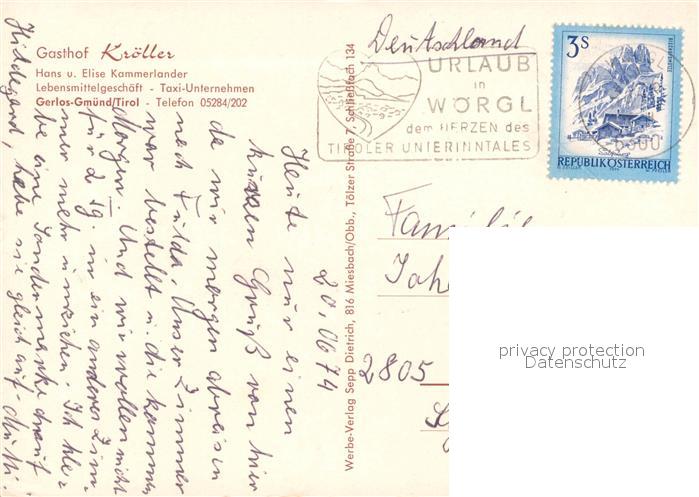 Gasthof Kröller
Hans u. Elise Kammerlander
Lebensmittelgeschäft - Taxi-Unternehmen
Gerlos-Gmünd/Tirol - Telefon 05284/202
Deutschland
URLAUB
in
WÖRGL
dem HERZEN des
TIROLER UNTERINNTALES
3S
REPUBLIK ÖSTERREICH
6300
Werbe-Verlag Sepp Dietrich, 816 Miesbach/Obb., Tölzer Straße 7, Schließfach 134
20.0674
Heute nur einen
kurzen Gruß von hier
da wir morgen abreisen
nach Fulda. Unser Zimmer
war bestellt u. die kommen
Morgen. Und wir wollen nicht
für 2 Tg. in ein anderes Zim-
mer mehr umziehen. Ich kle-
be eine Sondermarke drauf
Hildegard, hebe sie gleich auf - Mutti
Familie
2805
privacy protection
Datenschutz